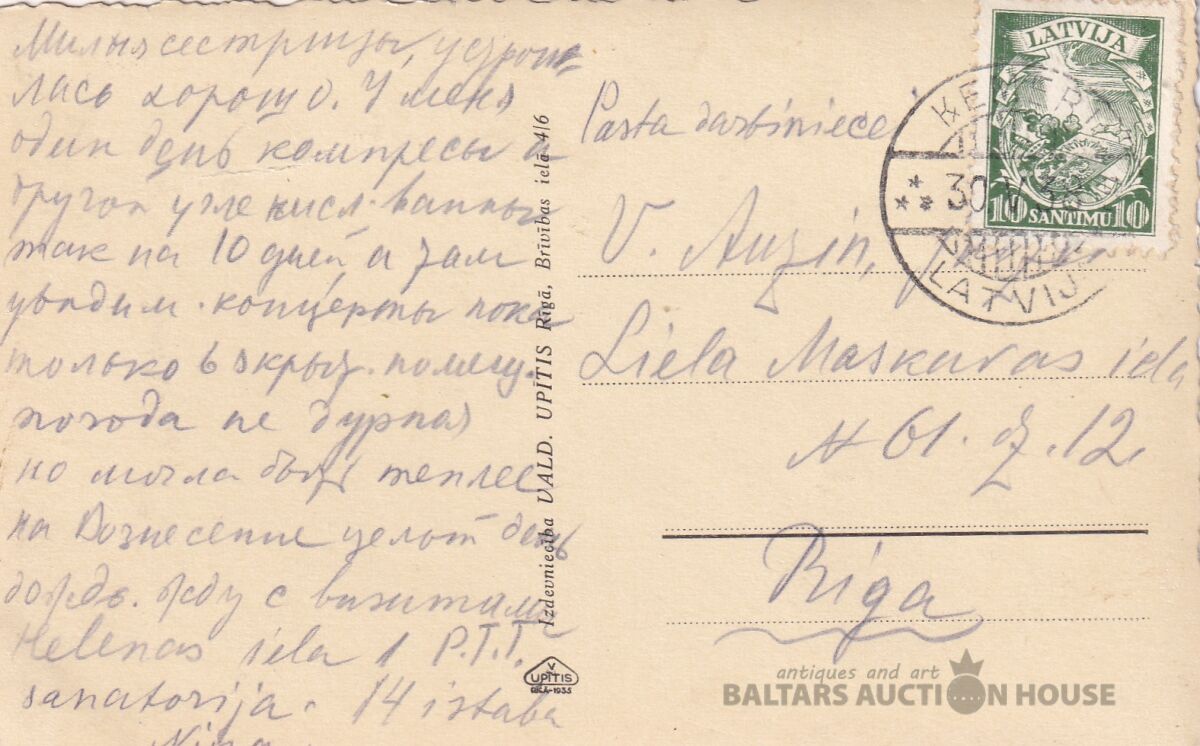 Милыя сестрицы, устрои-
лась хорошо. У меня
один день компресы а
другой угле кисл. ванны
так на 10 дней а там
увидим. концерты пока
только в закрыт. помещ.
погода не дурная
но могла быть теплее
на Вознесение целый день
дождь. Жду с визитами
Helenas iela 1 P.T.T.
sanatorija. 14 istaba
Nina
Izdevniecība VALD. UPĪTIS Rīgā, Brīvības ielā 4/6
V
UPĪTIS
RĪGĀ-1935
Pasta darbiniecei
V. Auziņ,
Liela Maskavas iela
N 61. dz. 12.
Riga
LATVIJA
10 SANTIMU 10
ĶEMERI
30
LATVIJA
antiques and art
BALTARS AUCTION HOUSE